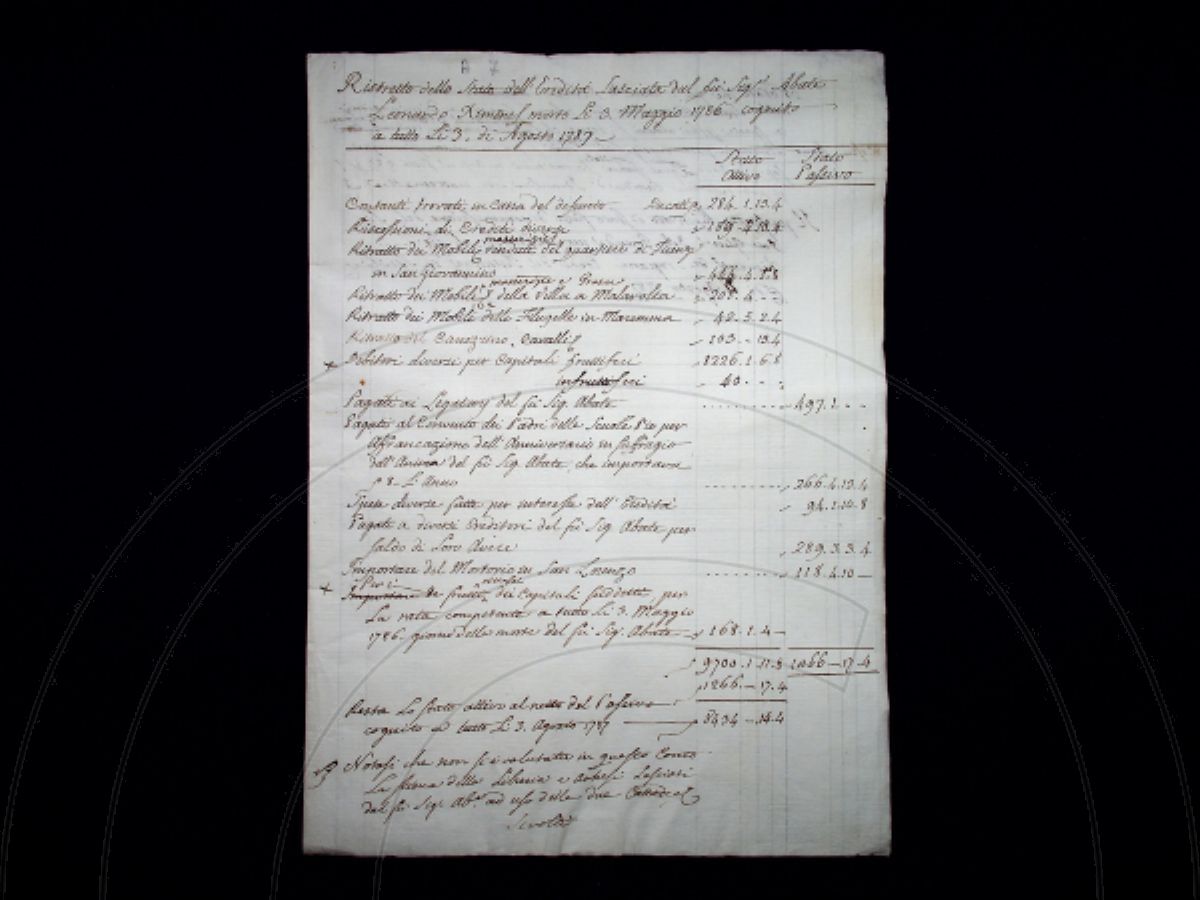 A 7
Ristretto dello Stato dell'Eredità Lasciata dal fù Sig.r Abate
Leonardo Ximenes morto Li 3. Maggio 1786 cognito
a tutto Li 3. di Agosto 1787.
Stato Stato
Attivo Passivo
Contanti trovati in Cassa del defunto 284.1.13.4
Riscossioni di Crediti diversi
masserizie
Ritratto dei Mobili vendute del quartiere di
in San Giovannino
masserizie e
Ritratto dei Mobili della Villa a Malavolta
Ritratto dei Mobili delle in Maremma 42.5.2.4
Ritratto del Cavalli 103.-.13.4
+ Debitori diversi per Capitali fruttiferi 8226.1.6.8
infruttiferi 40.-.-.
Pagati ai Legatarj del fù Sig. Abate 497.1.-.-
Pagati al Convento dei Padri delle Scuole Pie per
Affrancazione dell'Anniversario in suffragio
dell'Anima del fù Sig. Abate, che importava
8. L'Anno 266.4.13.4
Spese diverse fatte per interesse dell'Eredità 94.1.10.8
Pagati a diversi Creditori del fù Sig. Abate per
saldo di Loro Avere 289.3.3.4
Importare del Mortorio in San Lorenzo 118.4.10 —
Per i
+ frutti dei Capitali suddetti, per
La rata competente a tutto Li 3. Maggio
1786. giorno della morte del fù Sig. Abate 168.1.4 —
9700.1.11.8 1266.—.17.4
1266.—.17.4
Resta Lo stato attivo al netto del Passivo
cognito a tutto Li 3. Agosto 1787 8434.—.14.4
Notasi che non si è valutata in questo Conto
La stima della Libreria e Lasciati
dal fù Sig.r Ab.e ad uso delle due Cattedre